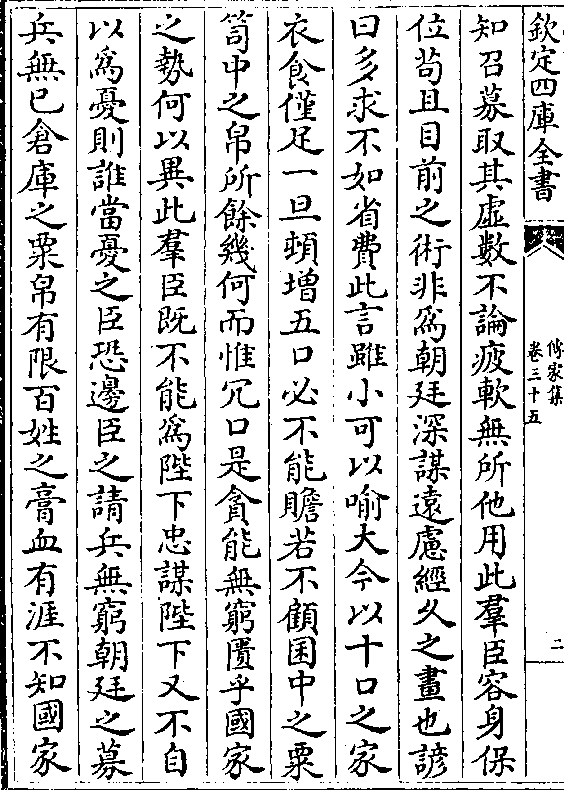 欽定四庫全書
傳家集
卷三十五
二
知召募取其虛數不論疲軟無所他用此羣臣容身保
位茍且目前之術非為朝廷深謀遠慮經久之畫也諺
曰多求不如省費此言雖小可以喻大今以十口之家
衣食僅足一旦頓增五口必不能贍若不顧囷中之粟
笥中之帛所餘幾何而惟冗口是貪能無窮匱乎國家
之勢何以異此羣臣既不能為陛下忠謀陛下又不自
以為憂則誰當憂之臣恐邊臣之請兵無窮朝廷之募
兵無已倉庫之粟帛有限百姓之膏血有涯不知國家